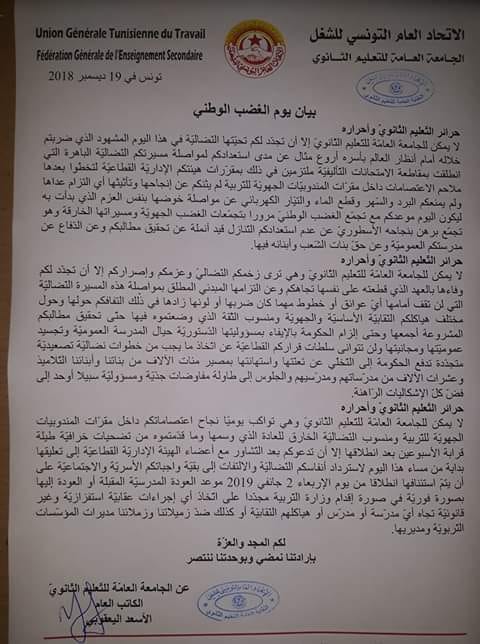 Union Générale Tunisienne du Travail
Fédération Générale de l'Enseignement Secondaire
الاتحاد العام التونسي للشغل
الجامعة العامة للتعليم الثانوي
تونس في 19 ديسمبر 2018
بيان يوم الغضب الوطني
حرائر التعليم الثانويّ وأحراره
لا يمكن للجامعة العامّة للتعليم الثانويّ إلا أن تجدّد لكم تحيّتها النضاليّة في هذا اليوم المشهود الذي ضربتم
خلاله أمام أنظار العالم بأسره أروع مثال عن مدى استعدادكم لمواصلة مسيرتكم النضاليّة الباهرة التي
انطلقت بمقاطعة الامتحانات التأليفيّة ملتزمين في ذلك بمقرّرات هيئتكم الإداريّة القطاعيّة لتخطوا بعدها
ملاحم الاعتصامات داخل مقرّات المندوبيات الجهويّة للتربية لم يثنكم عن إنجاحها وتأثيثها أي التزام عداها
ولم يمنعكم البرد والسّهر وقطع الماء والتيّار الكهربائي عن مواصلة خوضها بنفس العزم الذي بدأت به
ليكون اليوم موعدكم مع تجمّع الغضب الوطنيّ مرورا بتجمّعات الغضب الجهويّة ومسيراتها الخارقة وهو
تجمّع برهن بنجاحه الأسطوريّ عن عدم استعدادكم التنازل قيد أنملة عن تحقيق مطالبكم وعن الدفاع عن
مدرستكم العموميّة وعن حقّ بنات الشّعب وأبنائه فيها.
حرائر التعليم الثانويّ وأحراره
لا يمكن للجامعة العامّة للتعليم الثانويّ وهي ترى زخمكم النضاليّ وعزمكم وإصراركم إلا أن تجدّد لكم
وفاءها بالعهد الذي قطعته على نفسها تجاهكم وعن التزامها المبدئي المطلق بمواصلة هذه المسيرة النضاليّة
التي لن تقف أمامها أيّ عوائق أو خطوط مهما كان ضربها أو لونها زادها في ذلك التفافكم حولها وحول
مختلف هياكلكم النقابيّة الأساسيّة والجهويّة ومنسوب الثقة الذي وضعتموه فيها حتى تحقيق مطالبكم
المشروعة أجمعها وحتى إلزام الحكومة بالإيفاء بمسؤوليتها الدستوريّة حيال المدرسة العموميّة وتجسيد
عموميّتها ومجانيتها ولن تتوانى سلطات قراركم القطاعيّة عن اتخاذ ما يجب من خطوات نضاليّة تصعيديّة
متجدّدة تدفع الحكومة إلى التخلي عن تعنتها واستهانتها بمصير مئات الآلاف من بناتنا وأبنائنا التلاميذ
وعشرات الآلاف من مدرّساتهم ومدرّسيهم والجلوس إلى طاولة مفاوضات جدّيّة ومسؤوليّة سبيلا أوحد إلى
فضّ كلّ الإشكاليات الرّاهنة.
حرائر التعليم الثانويّ وأحراره
لا يمكن للجامعة العامّة للتعليم الثانويّ وهي تواكب يوميّا نجاح اعتصاماتكم داخل مقرّات المندوبيات
الجهويّة للتربية ومنسوب النضاليّة الخارق للعادة الذي وسمها وما قدّمتموه من تضحيات خرافيّة طيلة
قرابة الأسبوعين بعد انطلاقها إلا أن تدعوكم بعد التشاور مع أعضاء الهيئة الإداريّة القطاعيّة إلى تعليقها
بداية من مساء هذا اليوم لاسترداد أنفاسكم النضاليّة والالتفات إلى بقيّة واجباتكم الأسريّة والاجتماعيّة على
أن يتمّ استئنافها انطلاقا من يوم الإربعاء 2 جانفي 2019 موعد العودة المدرسيّة المقبلة أو العودة إليها
بصورة فوريّة في صورة إقدام وزارة التربية مجدّدا على اتخاذ أي إجراءات عقابيّة استفزازيّة وغير
قانونيّة تجاه أيّ مدرّسة أو مدرّس أو هياكلهم النقابيّة أو كذلك ضدّ زميلاتنا وزملائنا مديرات المؤسّسات
التربويّة ومديريها.
ولكم المجد والعزّة
بإرادتنا نمضي وبوحدتنا ننتصر
عن الجامعة العامّة للتعليم الثانويّ
الكاتب العام
الأسعد اليعقوبي